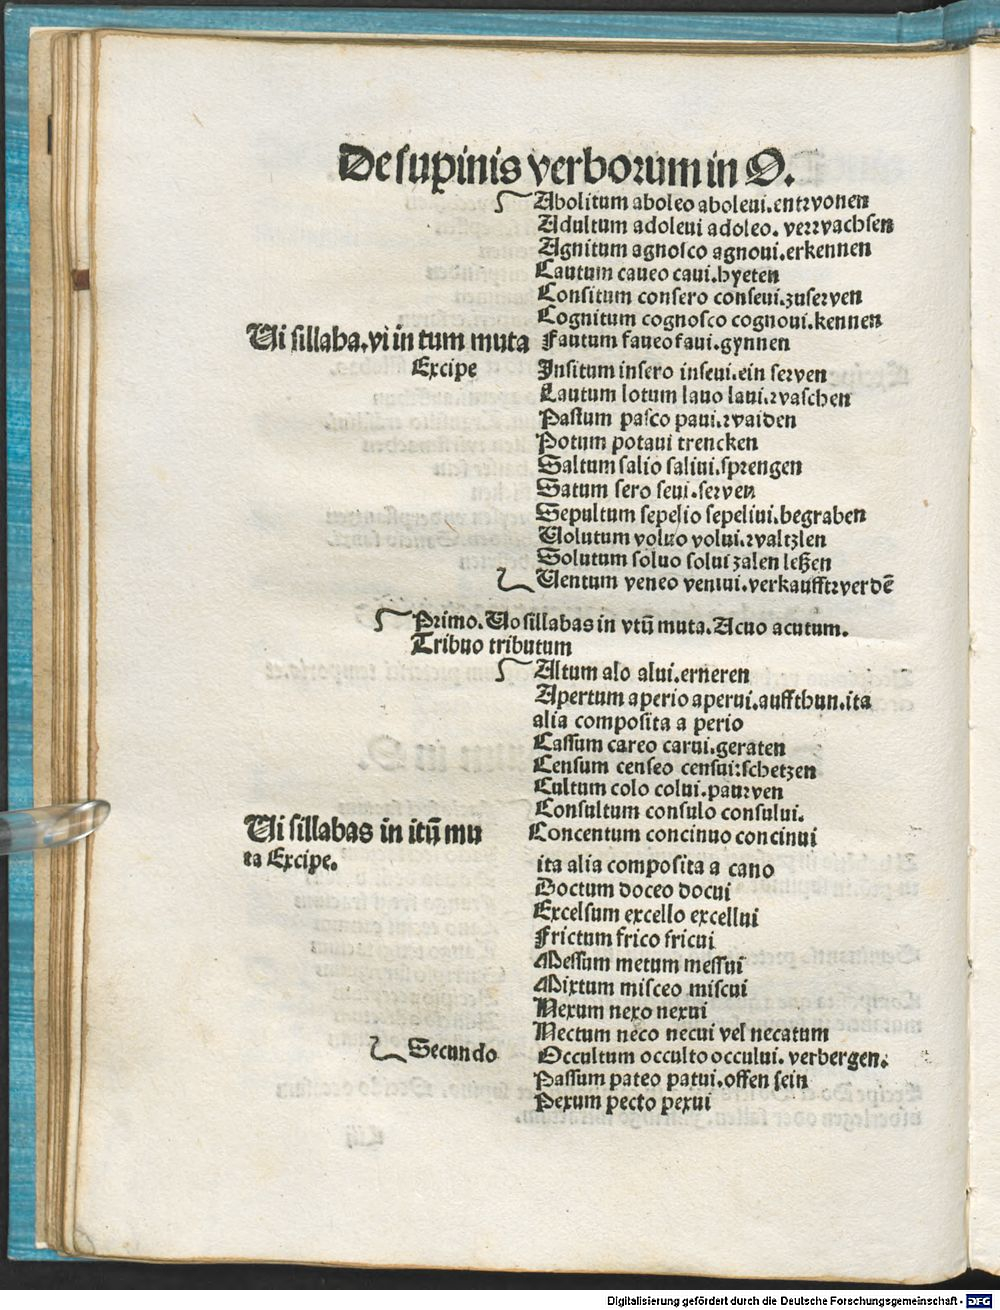 De supinis verborum in O.
Abolitum aboleo aboleui.entwonen
Adultum adoleui adoleo. verwachsen
Agnitum agnosco agnoui.erkennen
Cautum caueo caui.hyeten
Consitum consero conseui.zuserven
Cognitum cognosco cognoui.kennen
Ui sillaba.vi in tum muta
Excipe
Fautum faueo faui.gynnen
Insitum insero inseui.ein serven
Lautum lotum lauo laui.waschen
Pastum pasco paui.waiden
Potum potaui trencken
Saltum salio saliui.sprengen
Satum sero seui.serven
Sepultum sepelio sepeliui.begraben
Uolutum voluo volui.waltzlen
Solutum soluo solui zalen leßen
Uentum veneo veniui.verkaufft werdē
Primo. Uo sillabas in vtū muta. Acuo acutum.
Tribuo tributum
Altum alo alui.erneren
Apertum aperio aperui.auffthun.ita
alia composita a perio
Cassum careo carui.geraten
Censum censeo censui:schetzen
Cultum colo colui.pauwen
Consultum consulo consului.
Ui sillabas in itū mu
ta Excipe.
Concentum concinuo concinui
ita alia composita a cano
Doctum doceo docui
Excelsum excello excellui
Frictum frico fricui
Messum metum messui
Mixtum misceo miscui
Nexum nexo nexui
Nectum neco necui vel necatum
Secundo
Occultum occulto occului. verbergen.
Passum pateo patui.offen sein
Pexum pecto pexui
Digitalisierung gefördert durch die Deutsche Forschungsgemeinschaft - DFG